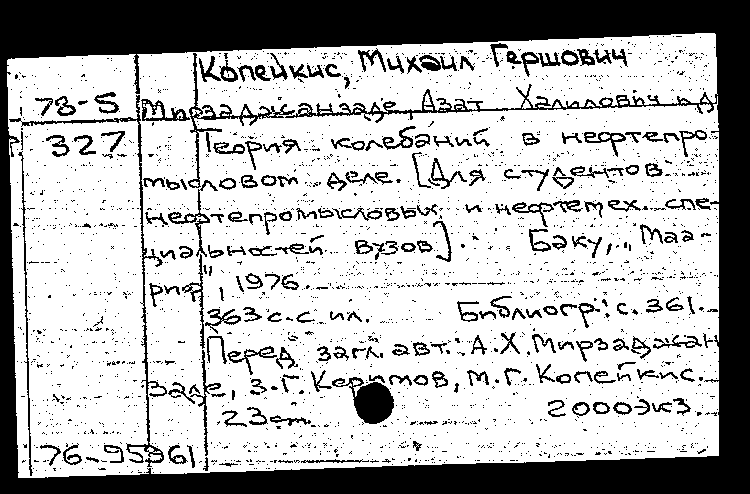 Копейкис, Михаил Гершович
78-5 Мирзаджанзаде, Азат Халилович и д
327 Теория колебаний в нефтепро-
мысловом деле. [Для студентов
нефтепромысловых и нефтемех. спе-
циальностей вузов]. Баку, „Маа-
риф", 1976.
363 с. с ил. Библиогр.: с. 361.
Перед загл. авт.: А.Х. Мирзаджан
заде, З.Г. Керимов, М.Г. Копейкис.
23 2000 экз.
76-95961